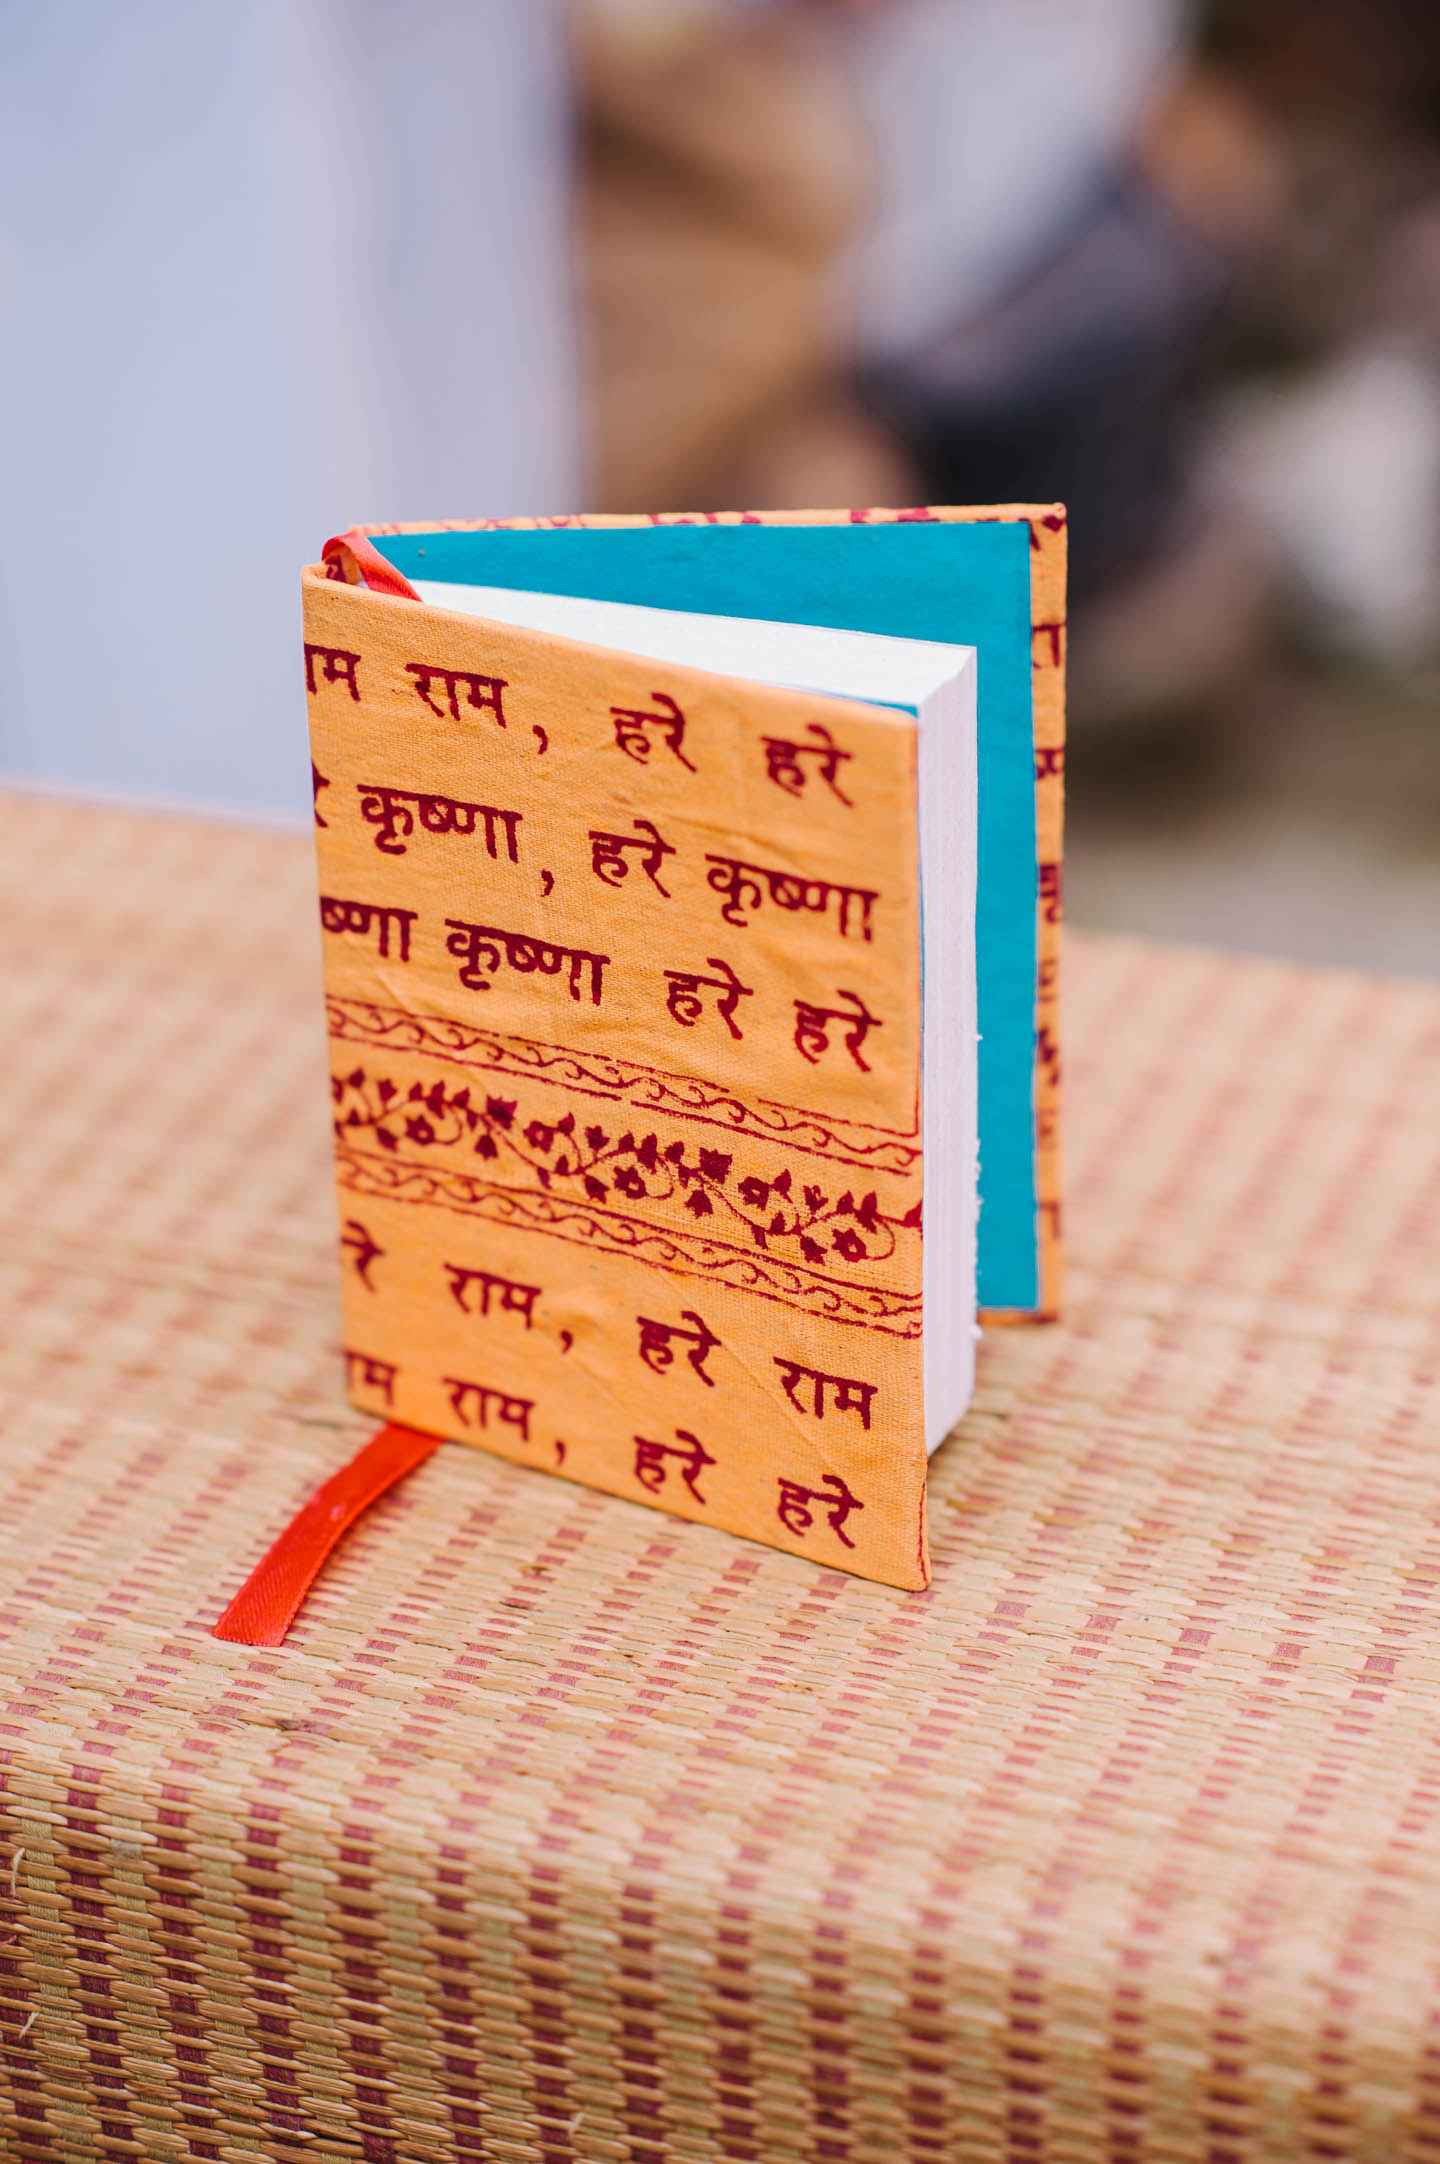 राम, हरे हरे
कृष्णा, हरे कृष्णा
कृष्णा हरे हरे
राम, हरे राम
राम, हरे हरे